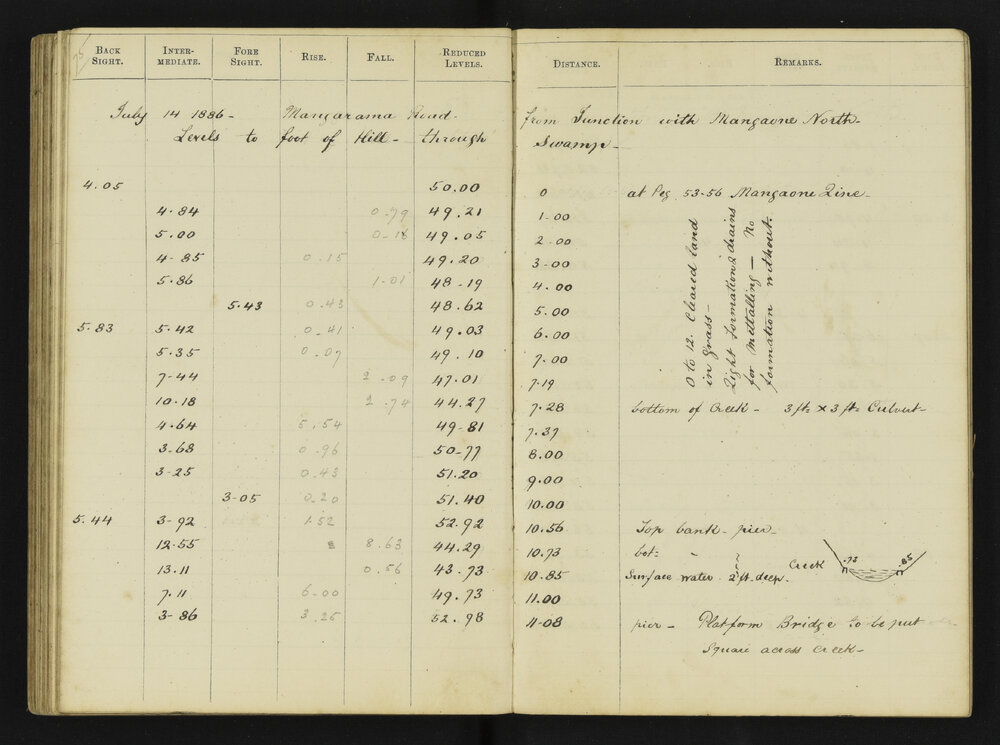 BACK SIGHT. INTER-MEDIATE. FORE SIGHT. RISE. FALL. REDUCED LEVELS. DISTANCE. REMARKS.
July 14 1886- Mangarama Road- from Junction with Mangaone North-
Levels to foot of Hill- through Swamp-
4.05 50.00 0 at Peg 53-56 Mangaone Line-
4.84 0.79 49.21 1.00
5.00 0.16 49.05 2.00
4.85 0.15 49.20 3.00
5.86 1.01 48.19 4.00
5.43 0.43 48.62 5.00
5.83 5.42 0.41 49.03 6.00
5.35 0.07 49.10 7.00
7.44 2.09 47.01 7.19
0 to 12. Cleared land
in Grass-
Light Formation & drains
for Metalling - No
formation without.
10.18 2.74 44.27 7.28 bottom of Creek- 3 ft. x 3 ft. Culvert-
4.64 5.54 49.81 7.37
3.68 0.96 50.77 8.00
3.25 0.43 51.20 9.00
3.05 0.20 51.40 10.00
5.44 3.92 1.52 52.92 10.56 Top bank- pier-
12.55 8.63 44.29 10.73 bot: " Creek .73 .85
13.11 0.56 43.73 10.85 Surface water 2 ft. deep.
7.11 6.00 49.73 11.00
3.86 3.25 52.98 11.08 pier- Platform Bridge to be put
Square across Creek-